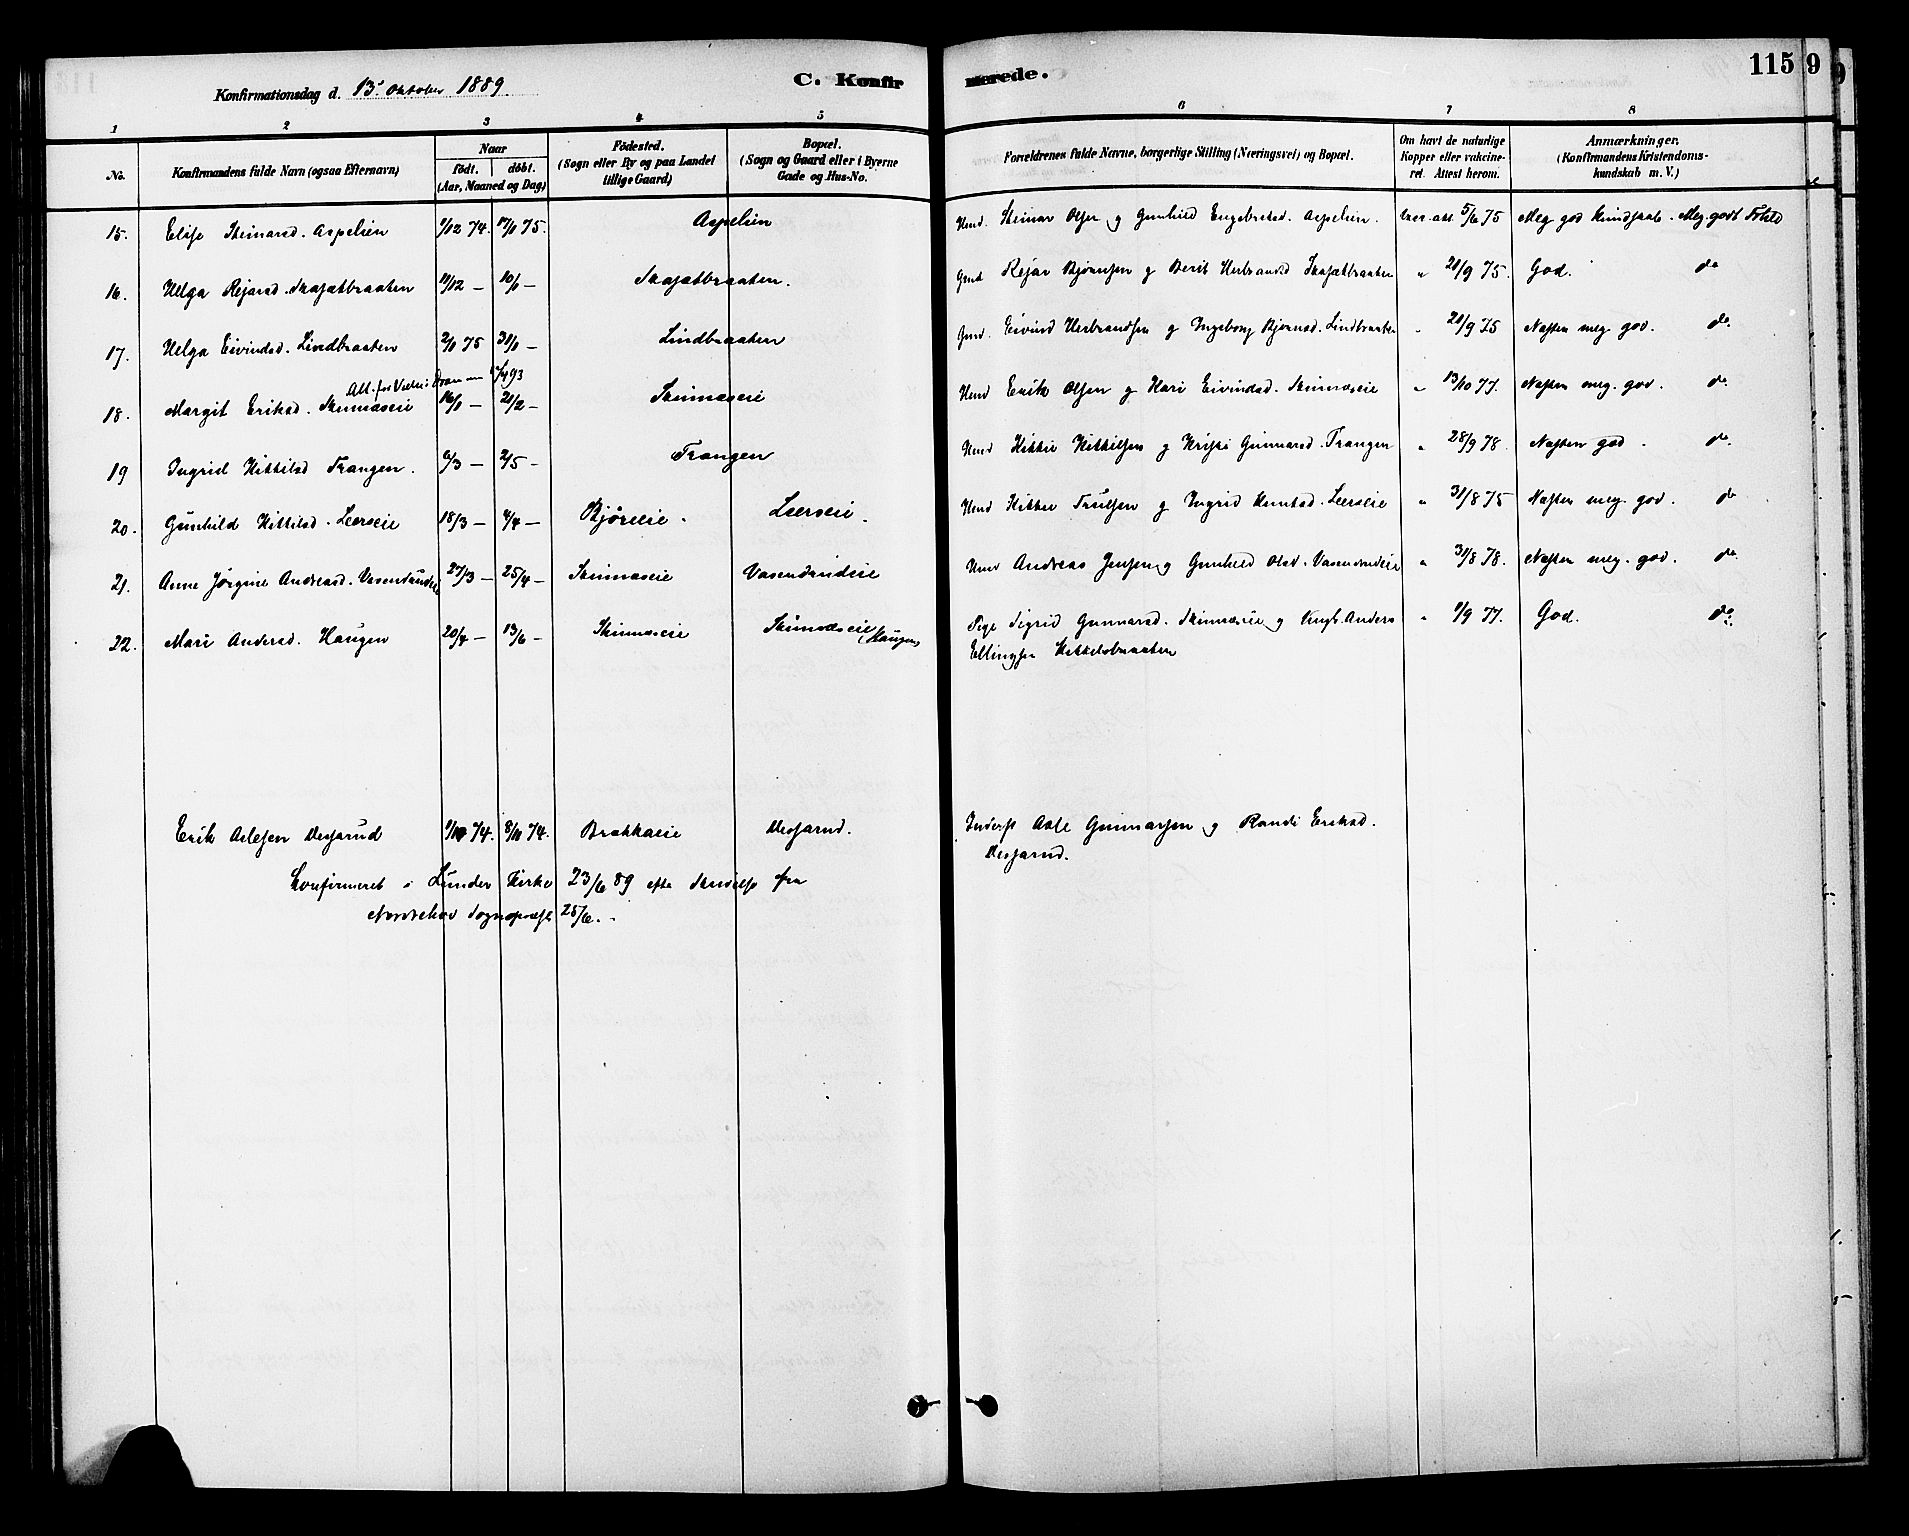 115
9
Konfirmationsdag d. 13 Oktober 1889.
C. Konfir
merede.
1 2 3 4 5 6 7 8
No.
Konfirmandens fulde Navn (ogsaa Efternavn)
Naar
födt. döbt.
(Aar, Maaned og Dag)
Födested.
(Sogn eller By og paa Landet
tillige Gaard)
Bopæl.
(Sogn og Gaard eller i Byerne
Gade og Hus-No.
Forældrenes fulde Navne, borgerlige Stilling (Næringsvei) og Bopæl.
Om havt de naturlige
Kopper eller vakcine-
ret. Attest herom.
Anmærkninger.
(Konfirmandens Kristendoms-
kundskab m. V.)
15. Elise Steinarsd. Aspelien 1/12 74. 17/1 75. Aspelien Steinar Olsen og Gunhild Engebretsd. Aspelien. 5/6 75 Meg god Kundskab. Meg. godt Forh
16. Helga Rejarsd. Skafætbraaten 11/12 — 10/1 — Skafætbraaten. Gmd Rejar Bjørnsen og Berit Herbrandsd Skafætbraaten " 21/9 75. God. do
17. Helga Eivindsd. Lindbraaten 2/1 75 31/1 — Lindbraaten Gmd. Eivind Herbrandsen og Ingeborg Bjørnsd. Lindbraaten " 21/9 75 Næsten meg. god. do.
Att. for 93
18. Margit Eriksd. Skinnæseie 16/1 — 21/2 — Skinnæseie Hmd Erik Olsen og Kari Eivindsd. Skinnæseie " 13/10 77. Næsten meg. god. do.
19 Ingrid Kittilsd Trangen. 6/3 — 2/5 — Trangen Hmd Kittil Kittilsen og Kristi Gunnarsd. Trangen " 28/9 78. Næsten god. do.
20. Gunhild Kittilsd. Leerseie 18/3 — 4/4 — Bjøreie. Leerseie. Hmd Kittil Trulsen og Ingrid Knutsd. Leerseie " 31/8 75 Næsten meg. god. do
21. Anne Jørgine Andreasd. Vasendrudeie 27/3 — 25/4 — Skinnæseie Vasendrudeie Hmd Andreas Jensen og Gunhild Olsd. Vasendrudeie " 31/8 78. Næsten meg. god. do
22. Mari Andersd. Haugen 20/4 — 13/6 — Skinnæseie Skinnæseie (Haugen) Pige Sigrid Gunnarsd. Skinnæseie og Ungk. Anders " 1/9 77. God. do.
Ellingsen Kittelsbraaten
Erik Aslesen Mesarud 1/10 74. 8/11 74. Brakkaeie Mesarud. Inderst Asle Gunnarsen og Randi Eriksd.
Mesarud.
Konfirmeret i Lunder Kirke 23/6 89 efter Skrivelse fra
Norderhov Sognepræst 25/6.